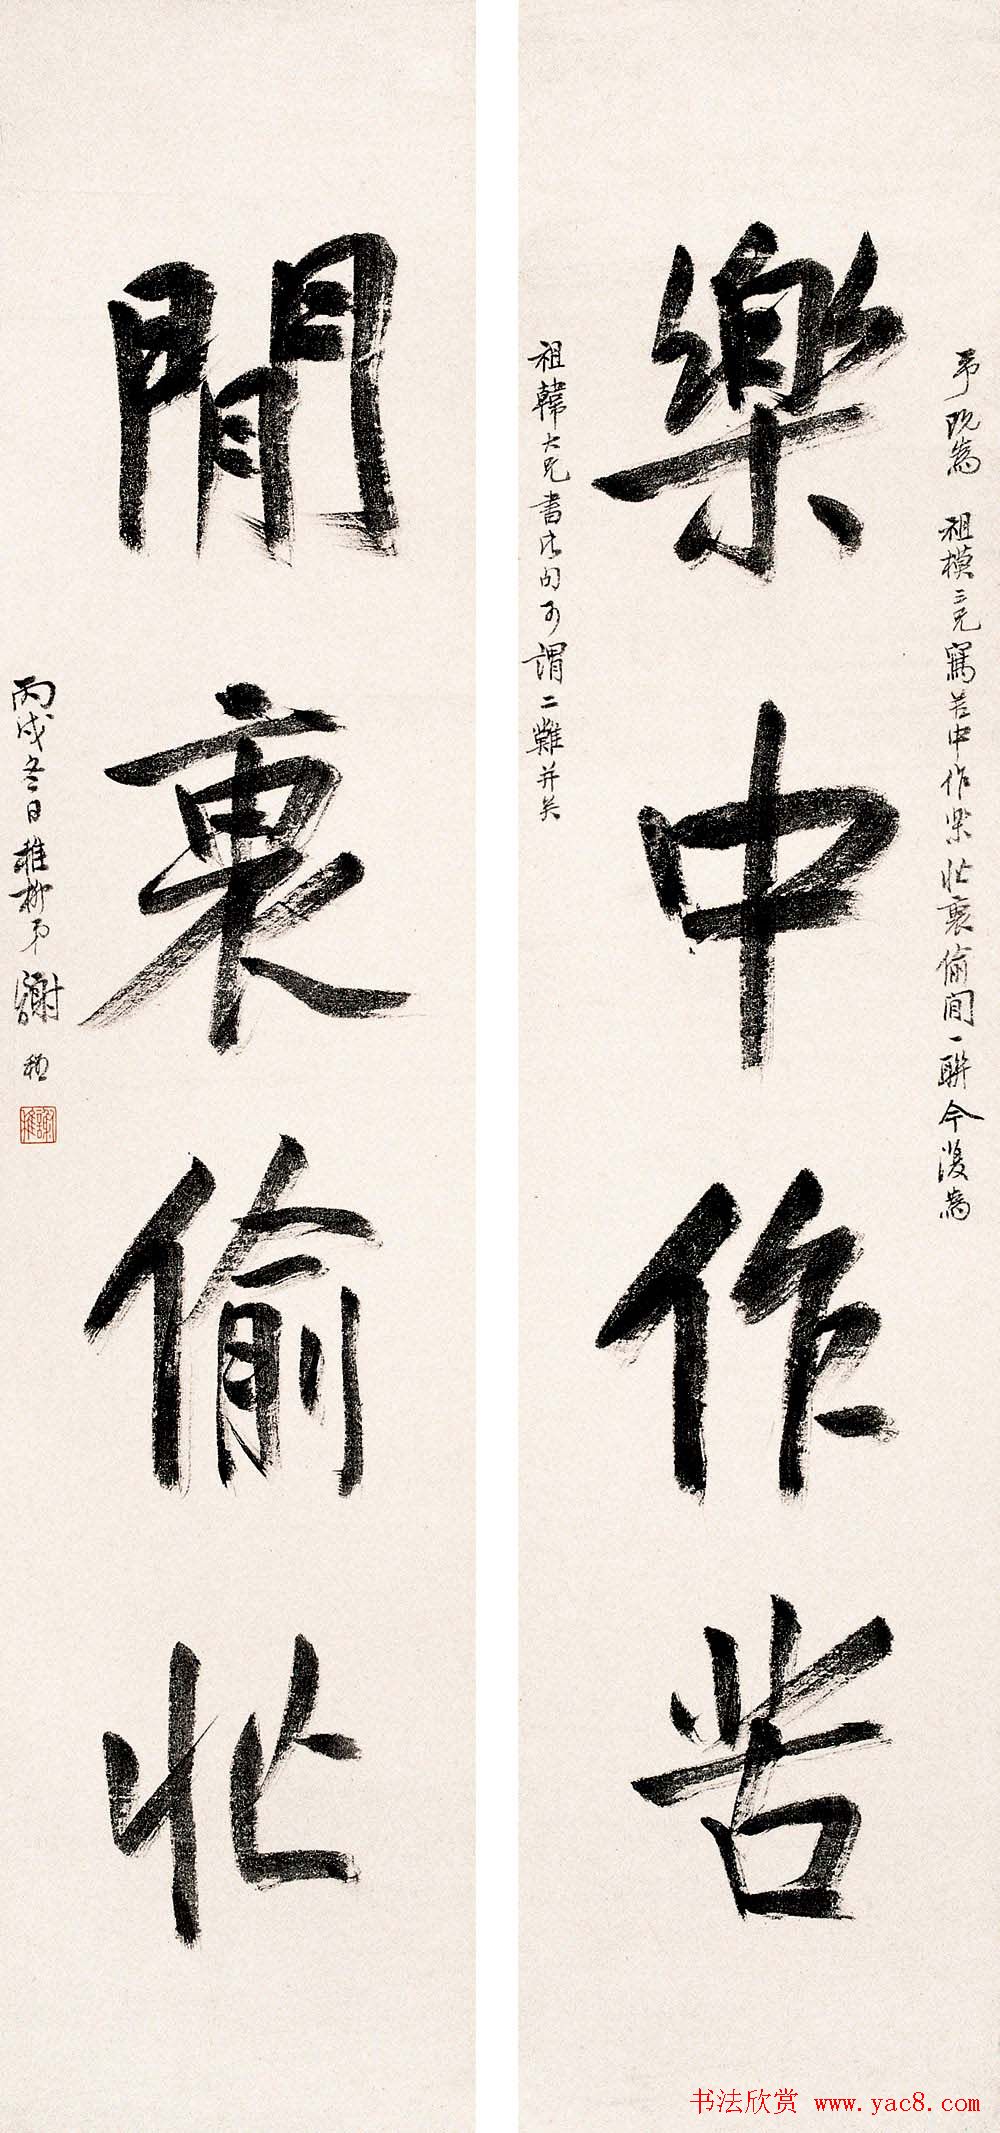 弟既為 祖模三兄寫苦中作樂忙裏偷閒一聯今復為
樂中作苦
祖韓大兄書此句可謂二難并矣
閒裏偷忙
丙戌冬日稚柳弟謝稚
謝稚
书法欣赏 www.yac8.com